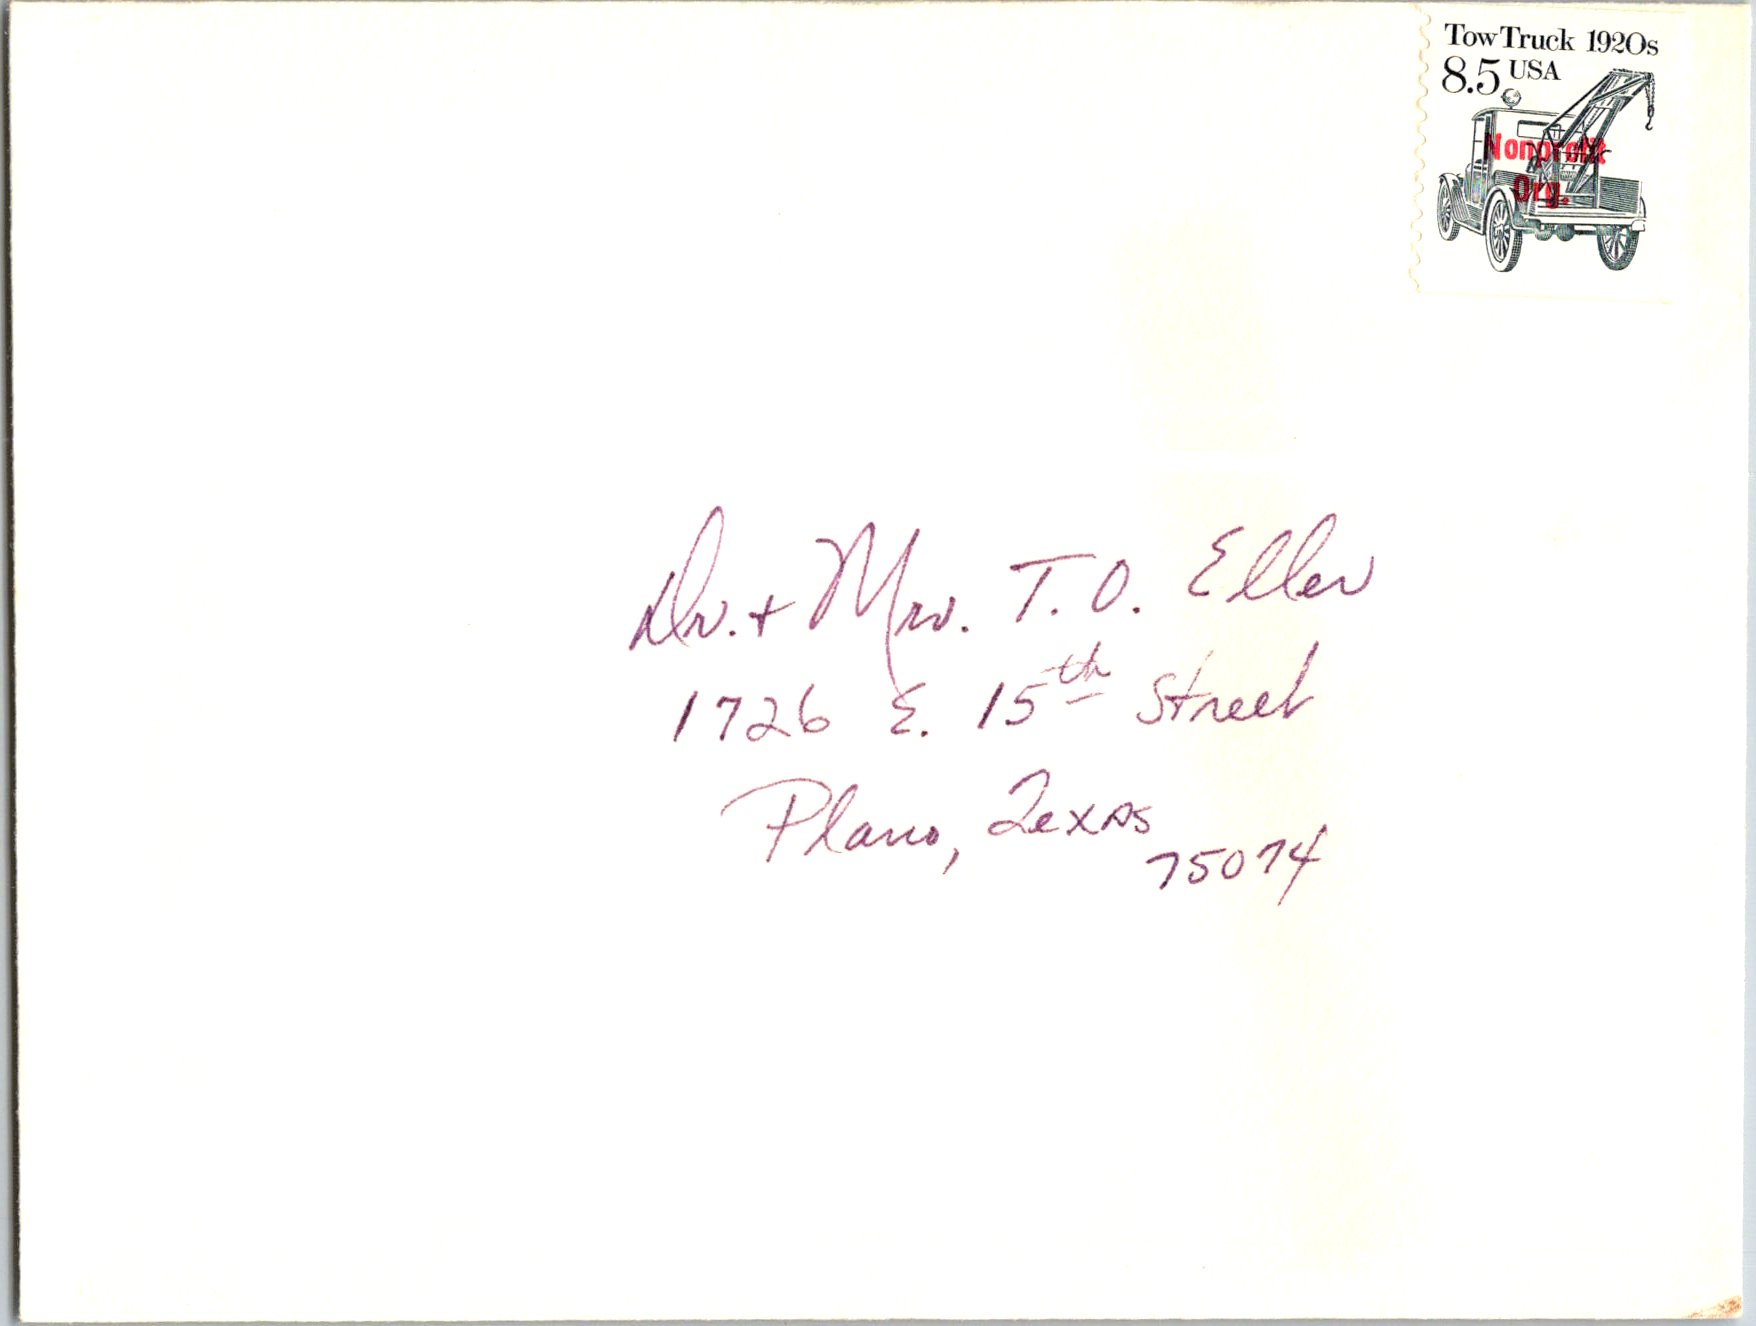 Tow Truck 1920s
8.5 USA
Nonprofit
Org.
Dr. + Mrs. T. O. Eller
1726 E. 15th Street
Plano, Texas
75074